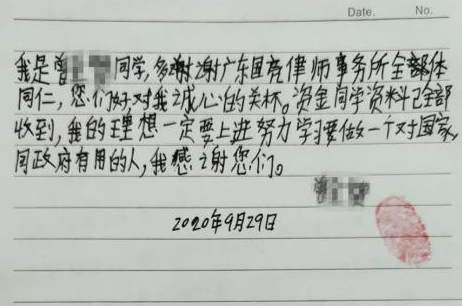 Date. No.
我是曾同学,多谢谢广东国亮律师事务所全部体
同仁,您们好,对我诚心的关怀。资金同学资料已全部
收到,我的理想一定要上进努力学习要做一个对国家,
同政府有用的人,我感谢您们。
2020年9月29日